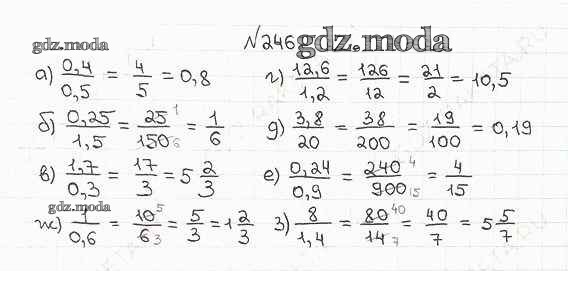 gdz.moda
N246 gdz.moda
а) 0,4/0,5 = 4/5 = 0,8
г) 12,6/1,2 = 126/12 = 21/2 = 10,5
б) 0,25/1,5 = 25 1/150 6 = 1/6
д) 3,8/20 = 38/200 = 19/100 = 0,19
в) 1,7/0,3 = 17/3 = 5 2/3
е) 0,24/0,9 = 240 4/900 15 = 4/15
gdz.moda
ж) 1/0,6 = 10 5/6 3 = 5/3 = 1 2/3
з) 8/1,4 = 80 40/14 7 = 40/7 = 5 5/7